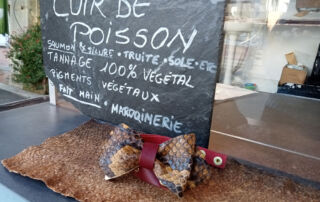 CUIR DE
POISSON
SAUMON • SILURE • TRUITE • SOLE • ETC
TANNAGE 100% VÉGÉTAL
PIGMENTS VÉGÉTAUX
FAIT MAIN • MAROQUINERIE